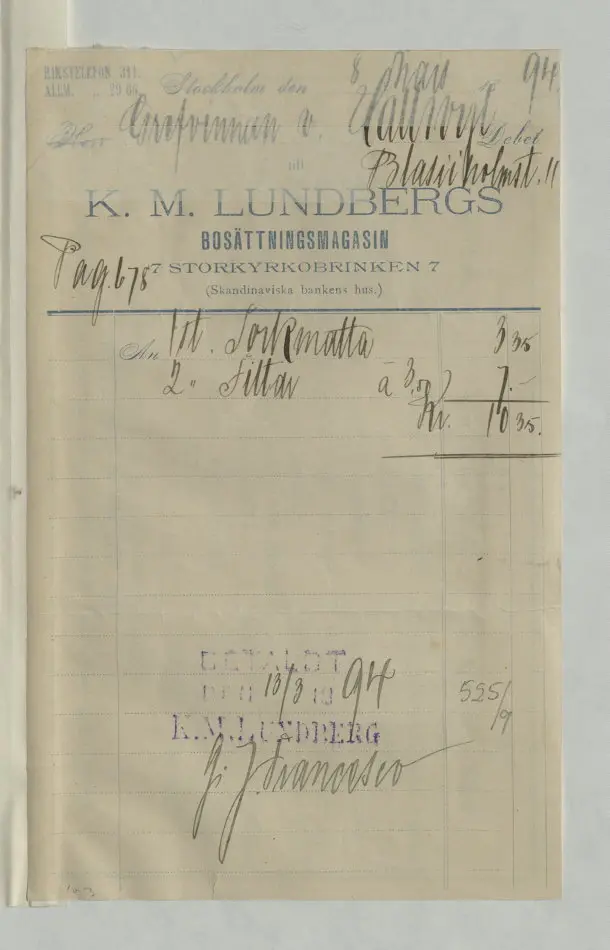 RIKSTELEFON 311.
ALLM. „ 29 66.
Stockholm den 8 Mars 94.
Herr Grefvinnan v. Hallwyl Debet
Blasiiholmst. 11
till
K. M. LUNDBERGS
BOSÄTTNINGSMAGASIN
Pag. 678
7 STORKYRKOBRINKEN 7
(Skandinaviska bankens hus.)
An 1 st. Torkmatta 3 35
2 „ Filtar à 3,50 7.-
Kr. 10 35.
BETALDT
DEN 13/3 94
K. M. LUNDBERG
525/9